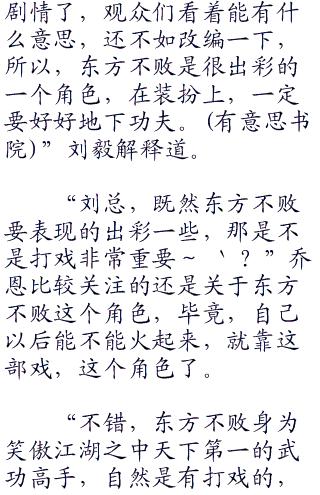 剧情了，观众们看着能有什
么意思，还不如改编一下，
所以，东方不败是很出彩的
一个角色，在装扮上，一定
要好好地下功夫。(有意思书
院)”刘毅解释道。
“刘总，既然东方不败
要表现的出彩一些，那是不
是打戏非常重要～‵？”乔
恩比较关注的还是关于东方
不败这个角色，毕竟，自己
以后能不能火起来，就靠这
部戏，这个角色了。
“不错，东方不败身为
笑傲江湖之中天下第一的武
功高手，自然是有打戏的，